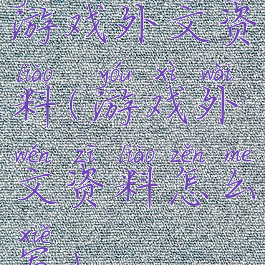 游戏外文资
liào yóu xì wài
料(游戏外
wén zī liào zěn me
文资料怎么
xiě